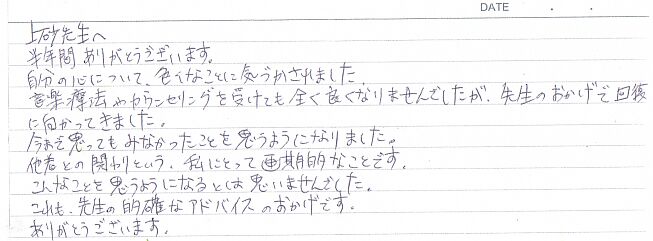 DATE . .
上砂先生へ
半年間ありがとうございます。
自分の心について、色々なことに気づかされました。
音楽療法やカウンセリングを受けても全く良くなりませんでしたが、先生のおかげで回復
に向かってきました。
今まで思ってもみなかったことを思うようになりました。
他者との関わりという、私にとって画期的なことです。
こんなことを思うようになるとは思いませんでした。
これも、先生の的確なアドバイスのおかげです。
ありがとうございます。